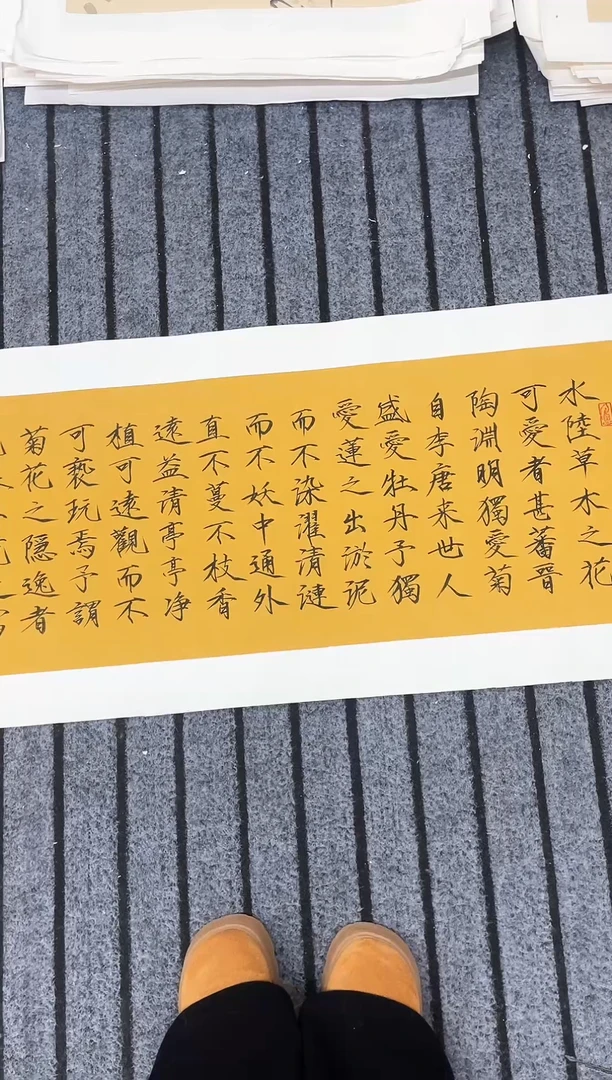 水陸草木之花
可愛者甚蕃晉
陶淵明獨愛菊
自李唐来世人
盛愛牡丹予獨
愛蓮之出淤泥
而不染濯清漣
而不妖中通外
直不蔓不枝香
遠益清亭亭净
植可遠觀而不
可褻玩焉予謂
菊花之隱逸者